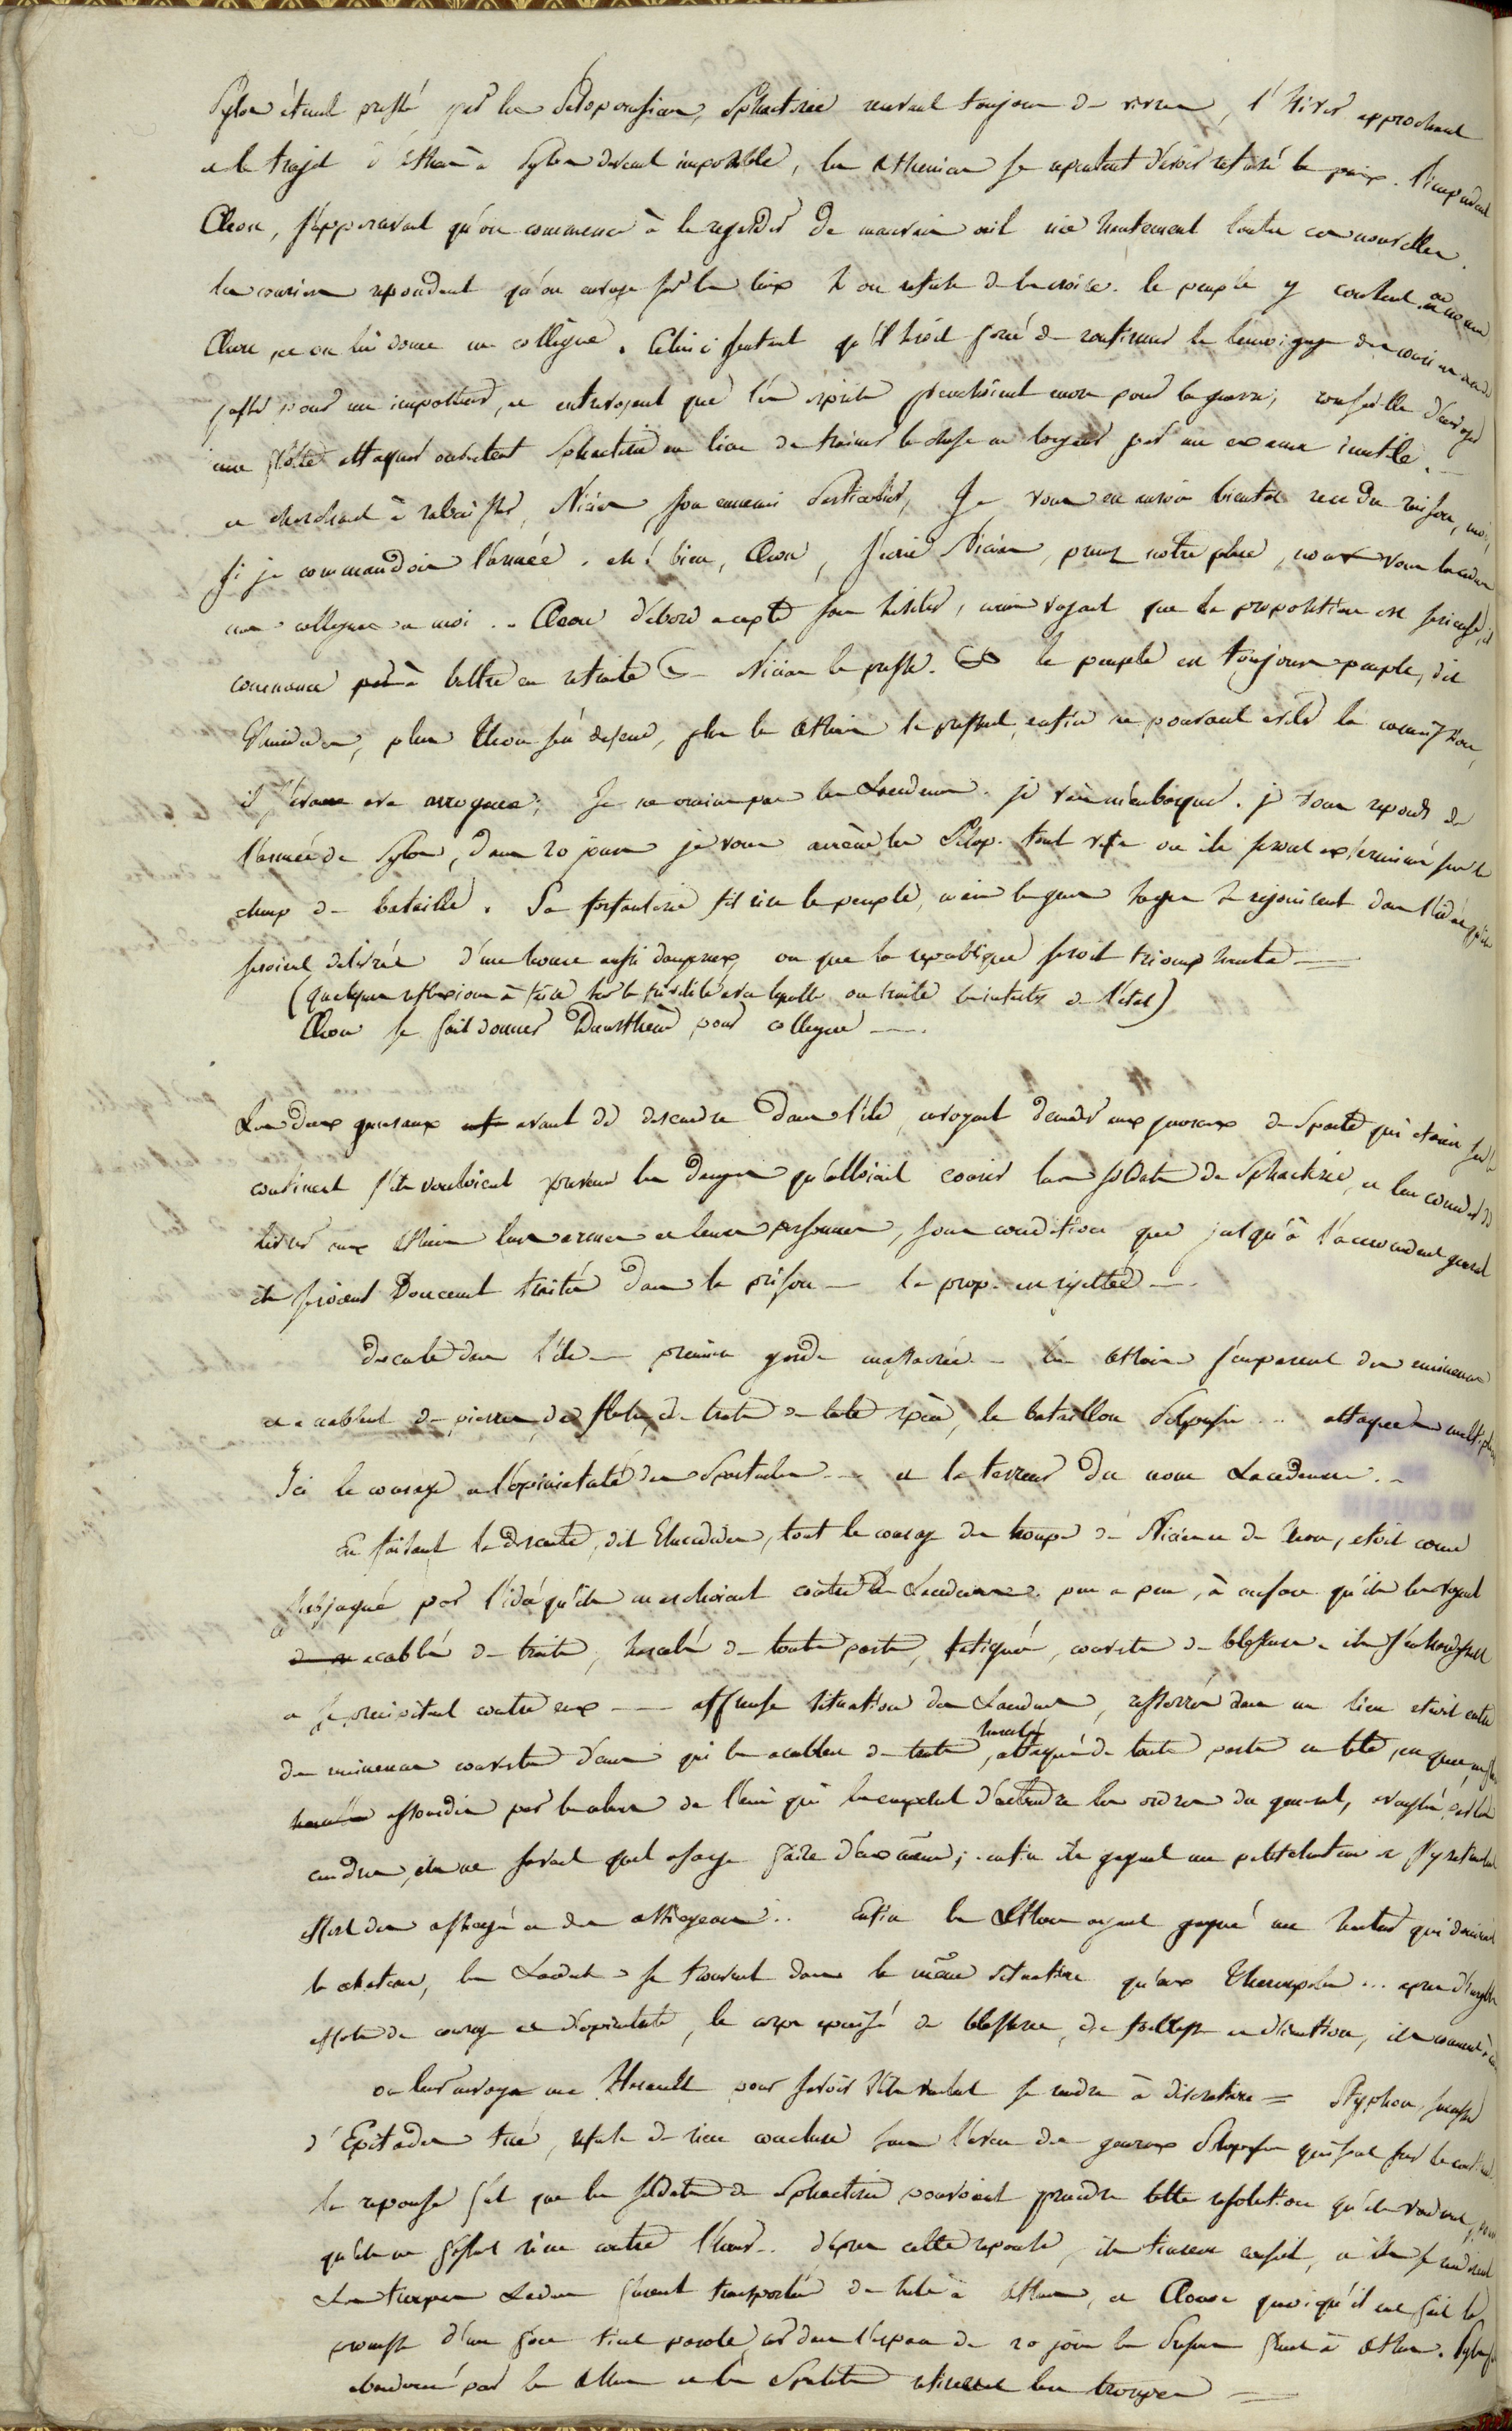 Pylos étant pressé par les Peloponesiens, Sphacterie recevant toujours des vivres, l'hiver approchant
et le trajet d'Athenes à Pylos devenant impossible, les Atheniens se repentent d'avoir refusé la paix. l'imprudent
Cleon, s'appercevant qu'on commence à le regarder de mauvais oeil nie hautement toutes ces nouvelles.
les couriers repondent qu'on envoye sur les lieux si on refuse de les croire. le peuple y consent, on nomme
Cleon, et on lui donne un collègue. Celui ci sentant qu'il seroit forcé de confirmer le temoignage des couriers ou de
passer pour un imposteur, et entrevoyant que les esprits penchoient encore pour la guerre, conseille d'envoyer
une flotte attaquer ouvertement Sphacterie au lieu de trainer la chose en longueur par un examen inutile.
et cherchant à rabaisser Nicias son ennemi particulier, Je vous en aurois bientôt rendu raison, moi,
si je commandois l'armée. eh! bien, Cleon, s'ecrie Nicias, prenez notre place, nous vous la cedons
mes collegues et moi .. Cleon d'abord accepte sans hesiter, mais voyant que la proposition est serieuse, il
commence à battre en retraite — Nicias le presse. le peuple est toujours peuple, dit
Thucidides, plus Cleon s'en defend, plus les Atheniens le pressent, enfin ne pouvant eviter la commission,
il s'avance avec arrogance; Je ne crains pas les Lacedem. je vais m'embarquer. je vous reponds de
l'armée de Pylos, dans 20 jours je vous amène les Pelop. tout vifs ou ils seront exterminés sur le
champ de bataille. Sa forfanterie fit rire le peuple, mais les gens sages se rejouissent dans l'idée qu'ils
seroient delivrés d'un homme aussi dangereux, ou que la republique seroit triomphante —
(quelques reflexions à faire sur la avec laquelle on traite les interets de l'etat)
Cleon se fait donner Demosthène pour collegue —.
Les deux generaux avant de descendre dans l'ile, envoyent demander aux generaux de Sparte qui etoient sur le
continent s'ils vouloient prevenir les dangers qu'alloient courir les soldats de Sphacterie, et leur commander de
livrer aux Atheniens leurs armes et leurs personnes, sous condition que jusqu'à l'accomodement general
ils seroient doucement traités dans la prison — la prop. est rejettée —
descente dans l'ile — premiere garde massacrée — les Atheniens s'emparent des eminences
et accablent de pierres, de fleches, de traits de toute espèce, le bataillon Pelopones. .. attaques multipliées
Ici le courage et l'opiniatreté des Spartiates — et la terreur du nom Lacedemonien. —
En faisant la descente, dit Thucidides, tout le courage des troupes de Nicias et de Cleon, etoit comme
subjugué par l'idée qu'ils marchoient contre des Lacedemoniens. peu a peu, à mesure qu'ils les voyent
accablés de traits, harcelés de toutes parts, fatigués, couverts de blessures — ils s'enhardissent
et se precipitent contre eux — affreuse situation des Lacedem, resserrés dans un lieu etroit entre
des eminences couvertes d'ennemis qui les accablent de traits, harcelés, attaqués de toutes parts en tete, en queue,
assourdis par les clameurs de l'ennemi qui les empechent d'entendre les ordres du general, aveuglés par les
cendres, ils ne savent quel usage faire d'eux mêmes; enfin ils gagnent un petit chateau et s'y retranchent
effort des assiegés et des assiegeans .. Enfin les Athen ayant gagné une hauteur qui dominoit
le chateau, les Lacedem. se trouvent dans la même situation qu'aux Thermopyles ... apres d'incroyables
efforts de courage et d'opiniatreté, le corps epuisé de blessures, de foiblesse et d'inaction, ils
on leur envoye un Heraut pour savoir s'ils veulent se rendre à discretion = Styphon, successeur
d'Epitades tué, refuse de rien conclure sans l'aveu des generaux Pelopones. qui sont sur le continent.
la reponse fut que les soldats de Sphacterie pouvoient prendre telle resolution qu'ils voudroient, pourvu
qu'ils ne fissent rien contre l'honneur.. d'apres cette reponse, ils tinrent conseil, et ils se rendirent
Les troupes Lacedem furent transportées de suite à Athenes, et Cleon quoiqu'il eut fait la
promesse d'un fou tint parole, car dans l'espace de 20 jours les Prisoniers furent à Athenes. Pylos fut
abandonné par les Athen et les Spartiates retirerent leurs troupes —